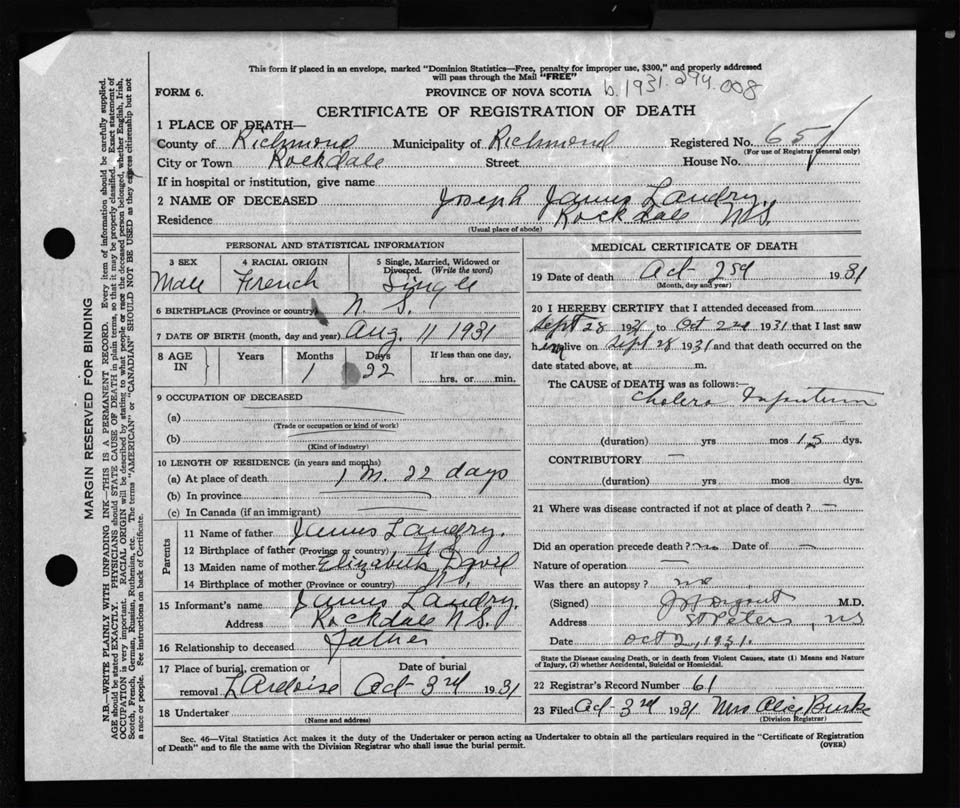 This form if placed in an envelope, marked "Dominion Statistics—Free, penalty for improper use, $300," and properly addressed
will pass through the Mail "FREE"
FORM 6.
PROVINCE OF NOVA SCOTIA b.1931.294.008
CERTIFICATE OF REGISTRATION OF DEATH
1 PLACE OF DEATH—
County of Richmond Municipality of Richmond Registered No. 651
(For use of Registrar General only)
City or Town Rockdale Street House No.
If in hospital or institution, give name
2 NAME OF DECEASED Joseph James Landry.
Residence Rockdale N.S.
(Usual place of abode)
PERSONAL AND STATISTICAL INFORMATION
3 SEX 4 RACIAL ORIGIN 5 Single, Married, Widowed or
Divorced. (Write the word)
Male French Single
6 BIRTHPLACE (Province or country) N. S.
7 DATE OF BIRTH (month, day and year) Aug. 11 1931
8 AGE IN Years Months Days If less than one day,
1 22 hrs. or min.
9 OCCUPATION OF DECEASED
(a)
(Trade or occupation or kind of work)
(b)
(Kind of industry)
10 LENGTH OF RESIDENCE (in years and months)
(a) At place of death 1 m. 22 days
(b) In province
(c) In Canada (if an immigrant)
Parents
11 Name of father James Landry.
12 Birthplace of father (Province or country) N.S.
13 Maiden name of mother Elizabeth
14 Birthplace of mother (Province or country) N.S.
15 Informant's name James Landry.
Address Rockdale N.S.
16 Relationship to deceased Father
17 Place of burial, cremation or Date of burial
removal L'Ardoise Oct 3rd 1931
18 Undertaker
(Name and address)
MEDICAL CERTIFICATE OF DEATH
19 Date of death Oct 2nd 1931
(Month, day and year)
20 I HEREBY CERTIFY that I attended deceased from
Sept 28 1931 to Oct 2nd 1931 that I last saw
him alive on Sept 28 1931 and that death occurred on the
date stated above, at m.
The CAUSE of DEATH was as follows:—
Cholera Infantum
(duration) yrs mos 15 dys.
CONTRIBUTORY —
(duration) yrs. mos. dys.
21 Where was disease contracted if not at place of death? —
Did an operation precede death? no Date of —
Nature of operation —
Was there an autopsy? no
(Signed) M.D.
Address St Peters, NS
Date Oct 2, 1931.
State the Disease causing Death, or in death from Violent Causes, state (1) Means and Nature
of Injury, (2) whether Accidental, Suicidal or Homicidal.
22 Registrar's Record Number 61
23 Filed Oct 3rd 1931 Mrs Alice Burke
(Division Registrar)
Sec. 46—Vital Statistics Act makes it the duty of the Undertaker or person acting as Undertaker to obtain all the particulars required in the "Certificate of Registration
of Death" and to file the same with the Division Registrar who shall issue the burial permit.
(OVER)
MARGIN RESERVED FOR BINDING
N.B.—WRITE PLAINLY WITH UNFADING INK—THIS IS A PERMANENT RECORD. Every item of information should be carefully supplied.
AGE should be stated EXACTLY. PHYSICIANS should STATE CAUSE OF DEATH in plain terms, so that it may be properly classified. Exact statement of
OCCUPATION is very important. RACIAL ORIGIN will be described by stating to what people or race the deceased person belonged, whether English, Irish,
Scotch, French, German, Russian, Ruthenian, etc. The terms "AMERICAN" or "CANADIAN" SHOULD NOT BE USED as they express citizenship but not
a race or people. See instructions on back of Certificate.